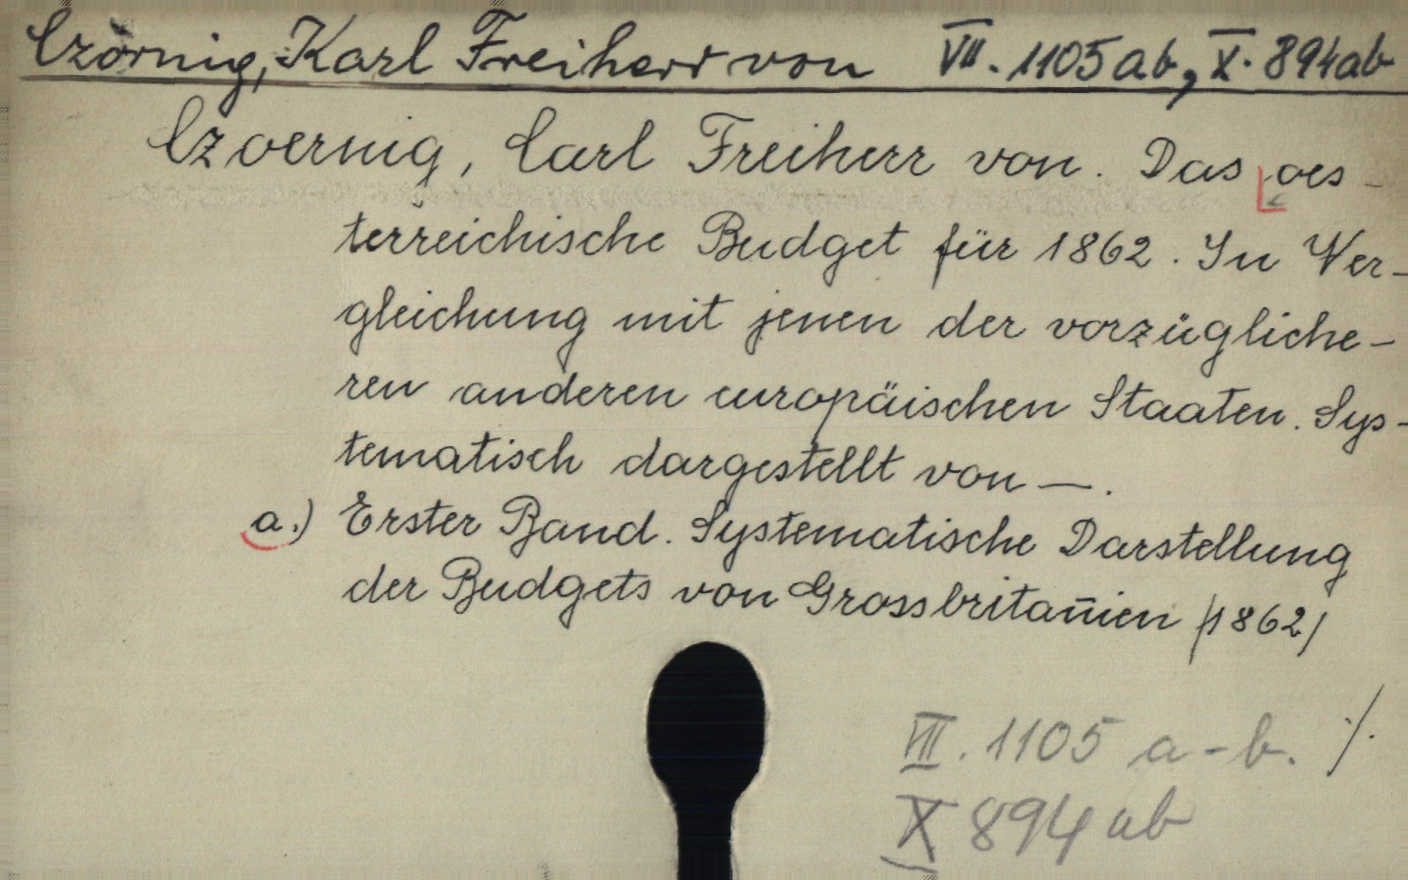 Czörnig, Karl Freiherr von VII. 1105ab, X. 894ab
Czoernig, Carl Freiherr von. Das oes-
terreichische Budget für 1862. In Ver-
gleichung mit jenen der vorzügliche-
ren anderen europäischen Staaten. Sys-
tematisch dargestellt von —.
a.) Erster Band. Systematische Darstellung
der Budgets von Grossbritan̄ien /1862/
VII. 1105 a-b. ·/.
X 894 ab